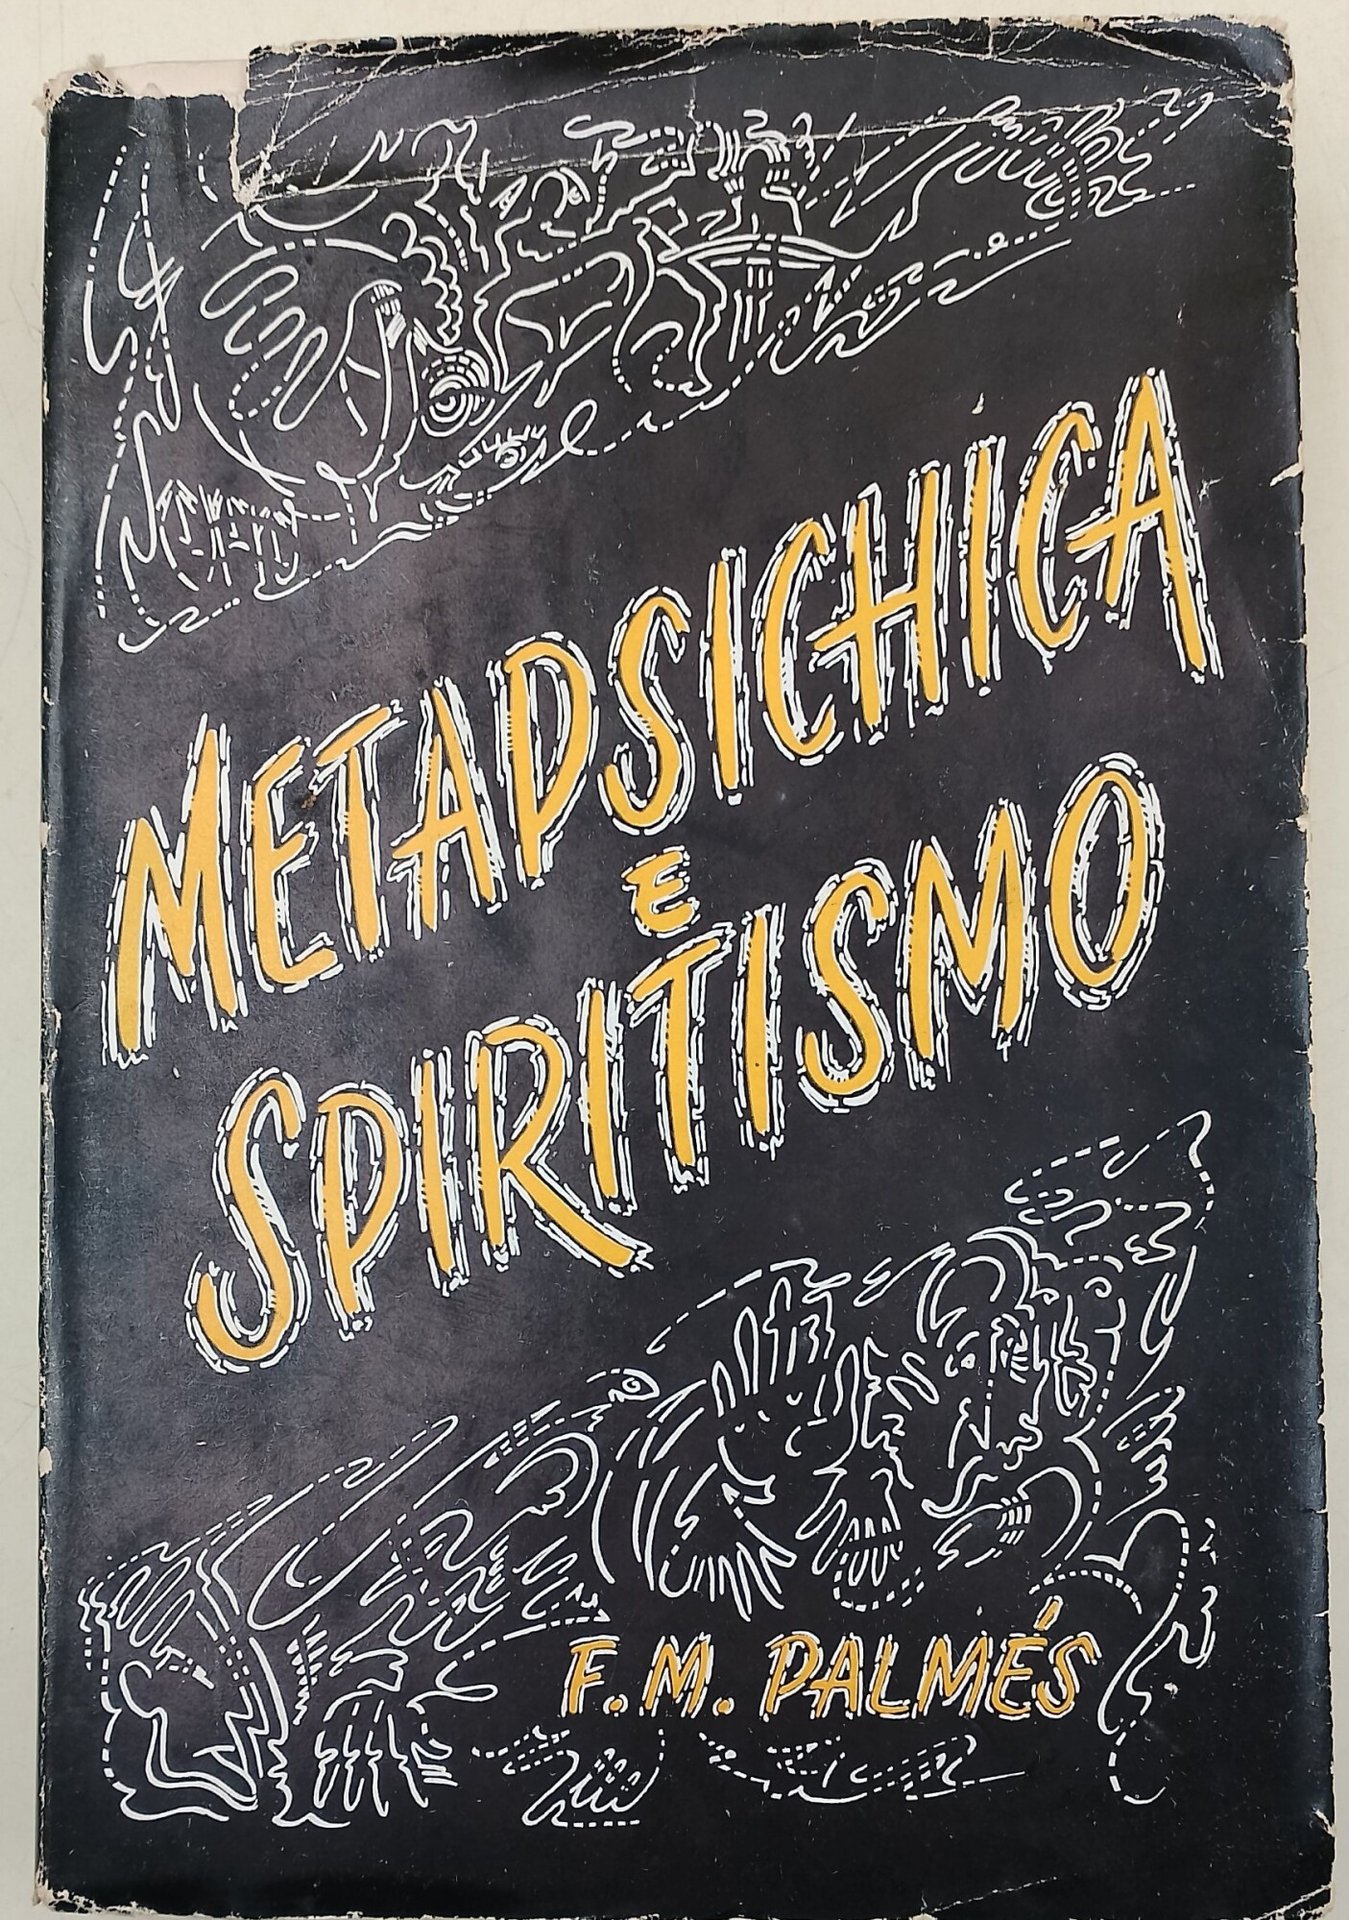 METAPSICHICA
E
SPIRITISMO
F. M. PALMÉS